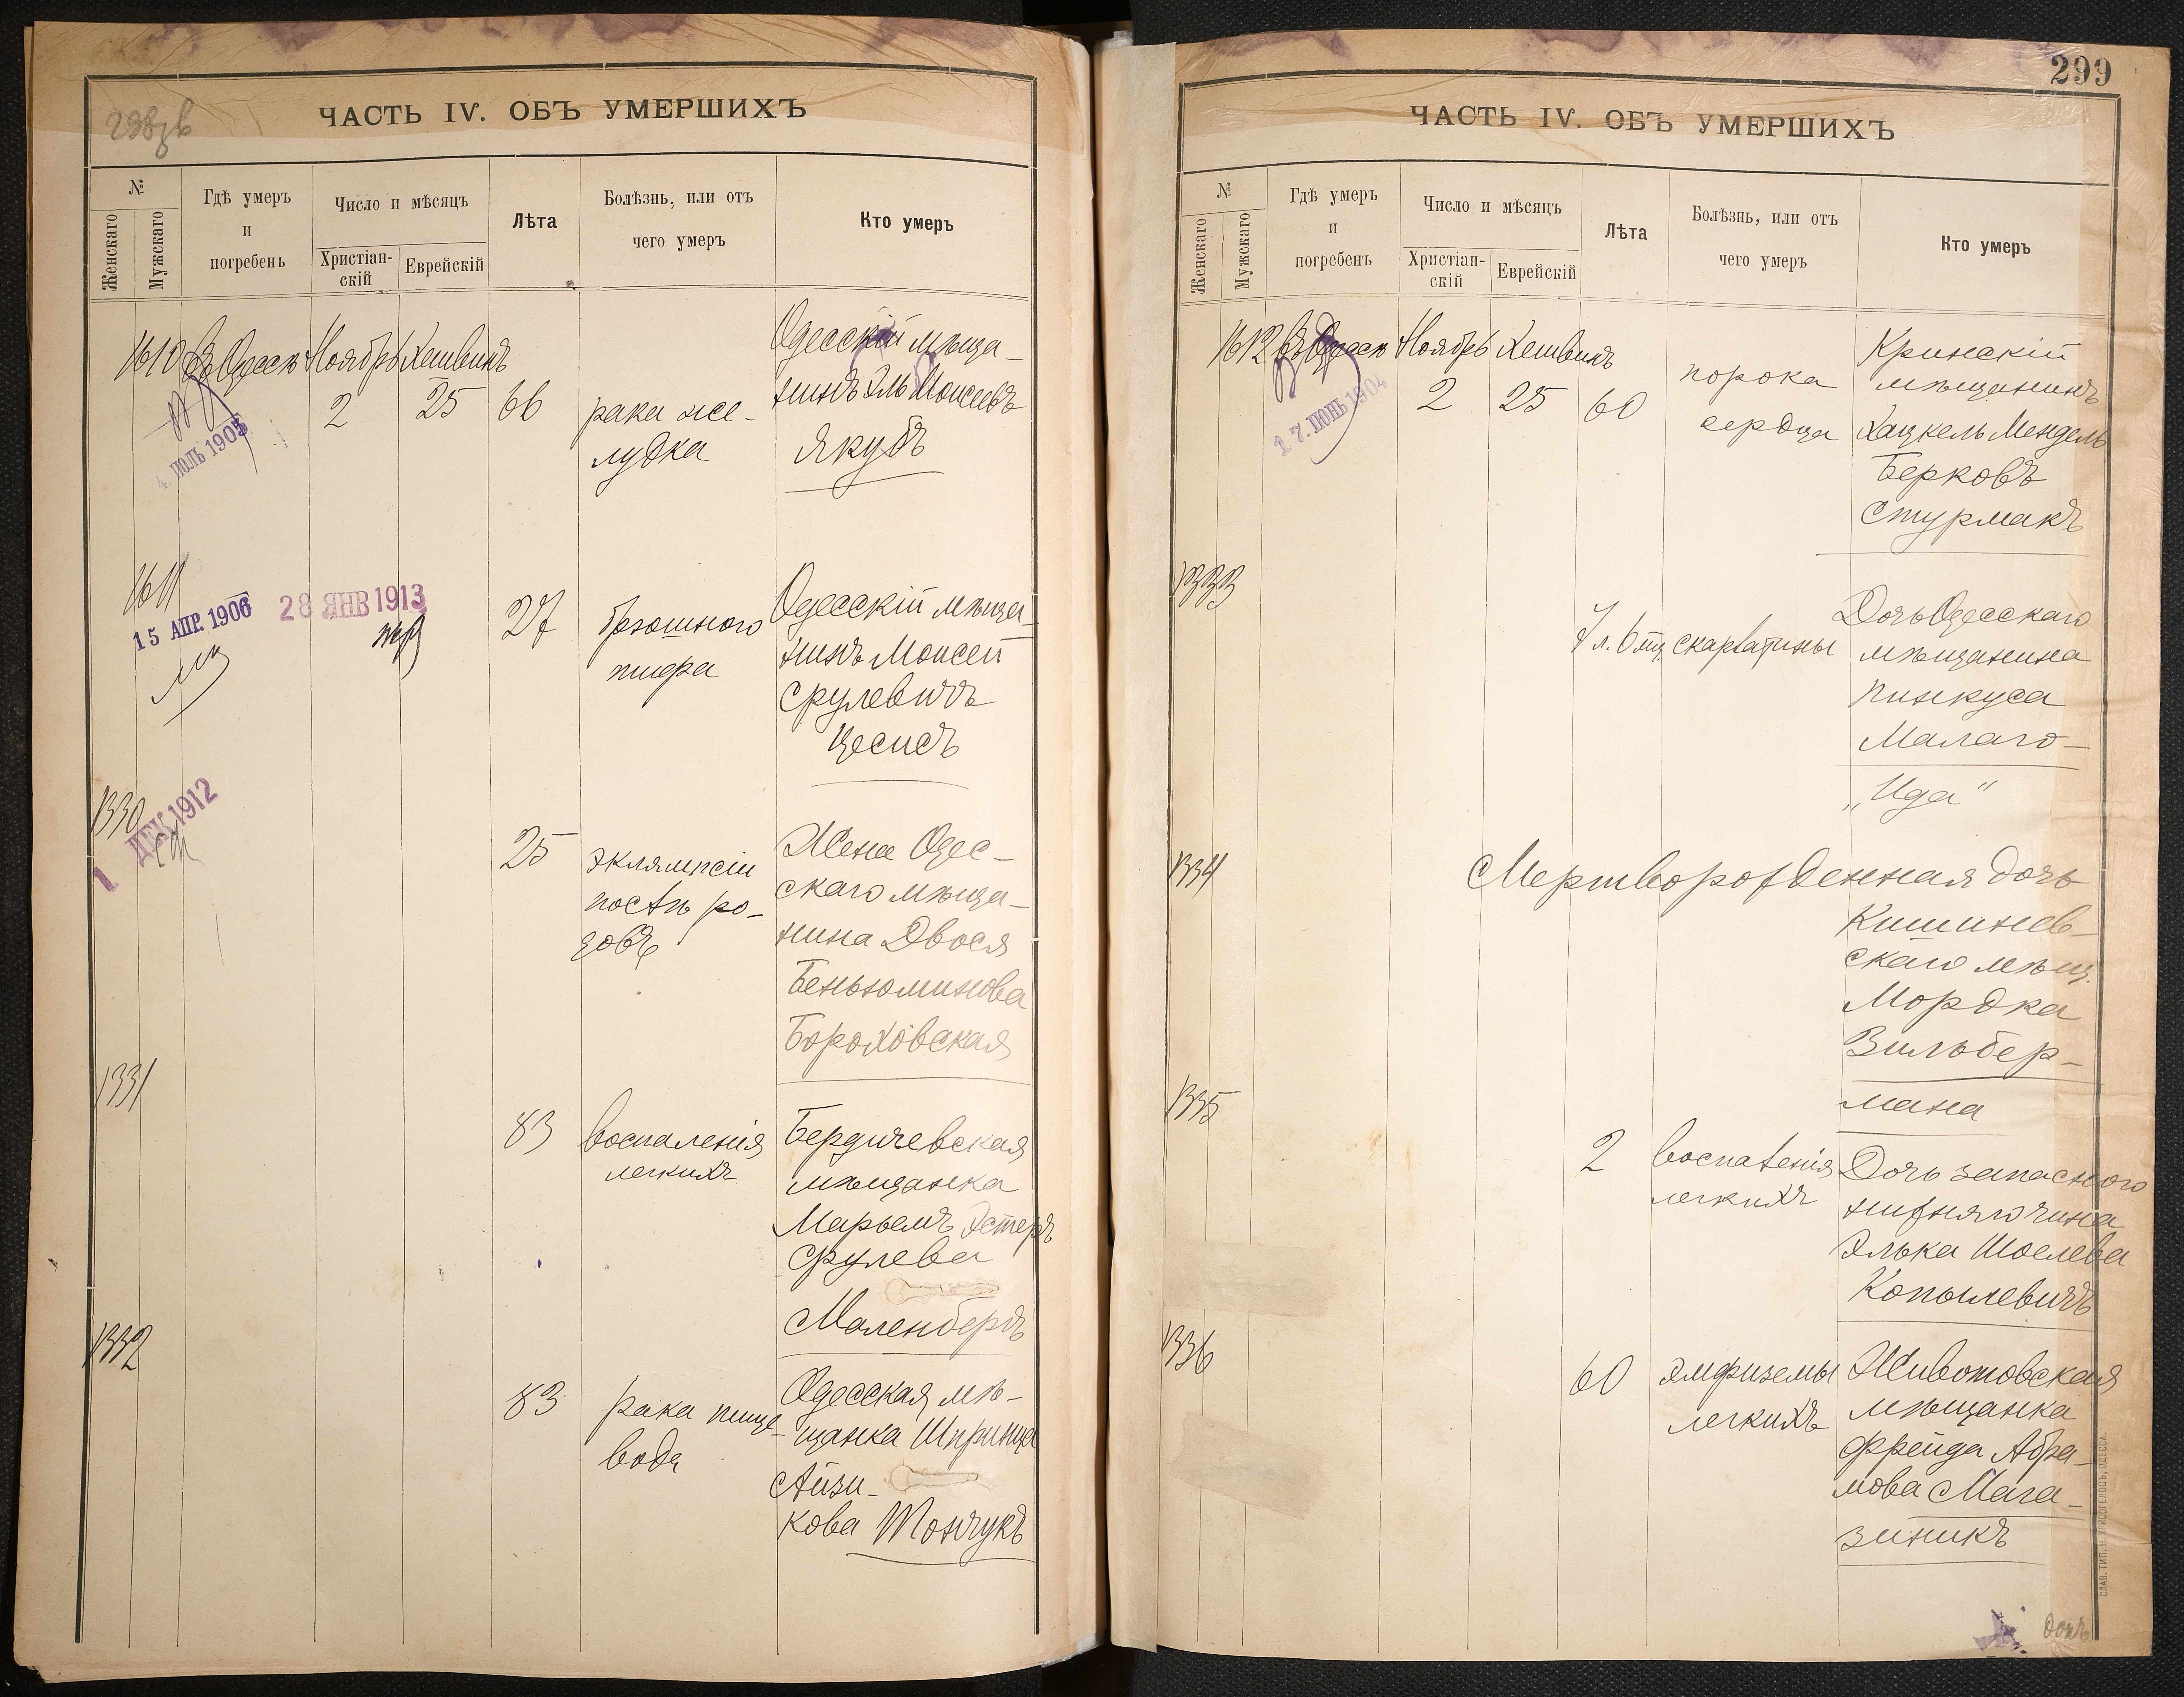 298 зв
ЧАСТЬ IV. ОБЪ УМЕРШИХЪ
№
Женскаго
Мужскаго
Гдѣ умеръ
и
погребенъ
Число и мѣсяцъ
Христіан-
скій
Еврейскій
Лѣта
Болѣзнь, или отъ
чего умеръ
Кто умеръ
1610 Въ Одессѣ Ноябрь Хешвинъ
2 25 66
рака же-
лудка
Одесскій мѣща-
нинъ Эль Моисеевъ
Якубъ
4. ІЮЛЬ 1905
1611
15 АПР. 1906
28 ЯНВ 1913
27
брюшного
тифа
Одесскій мѣща-
нинъ Моисей
Срулевичъ
Цесисъ
1330
1 ДЕК 1912
25
эклямпсіи
послѣ ро-
довъ
Жена Одес-
скаго мѣща-
нина Двося
Беньюминова
Бороховская
1331
83
воспаленія
легкихъ
Бердичевская
мѣщанка
Марьемъ Эстеръ
Срулева
Моленберъ
1332
83
рака пище-
вода
Одесская мѣ-
щанка Шпринца
Айзи-
кова Тончукъ
299
ЧАСТЬ IV. ОБЪ УМЕРШИХЪ
№
Женскаго
Мужскаго
Гдѣ умеръ
и
погребенъ
Число и мѣсяцъ
Христіан-
скій
Еврейскій
Лѣта
Болѣзнь, или отъ
чего умеръ
Кто умеръ
1612 Въ Одессѣ Ноябрь Хешвинъ
2 25 60
порока
сердца
Кринскій
мѣщанинъ
Хацкель Мендель
Берковъ
Стурмакъ
17. ІЮНЬ 1904
1333
7 л. 6 мц. скарлатины
Дочь Одесскаго
мѣщанина
Пинкуса
Малаго-
„Ида"
1334
Мертворожденная дочь
Кишинев-
скаго мѣщ.
Мордка
Зильбер-
мана
1335
2
воспаленія
легкихъ
Дочь запасного
нижняго чина
Элька Шоелева
Копылевичъ
1336
60
эмфиземы
легкихъ
Животовская
мѣщанка
Фрейда Абра-
мова Мага-
зиникъ
СЛАВ. ТИП. Н. ХРИСОГЕЛОСЪ, ОДЕССА.